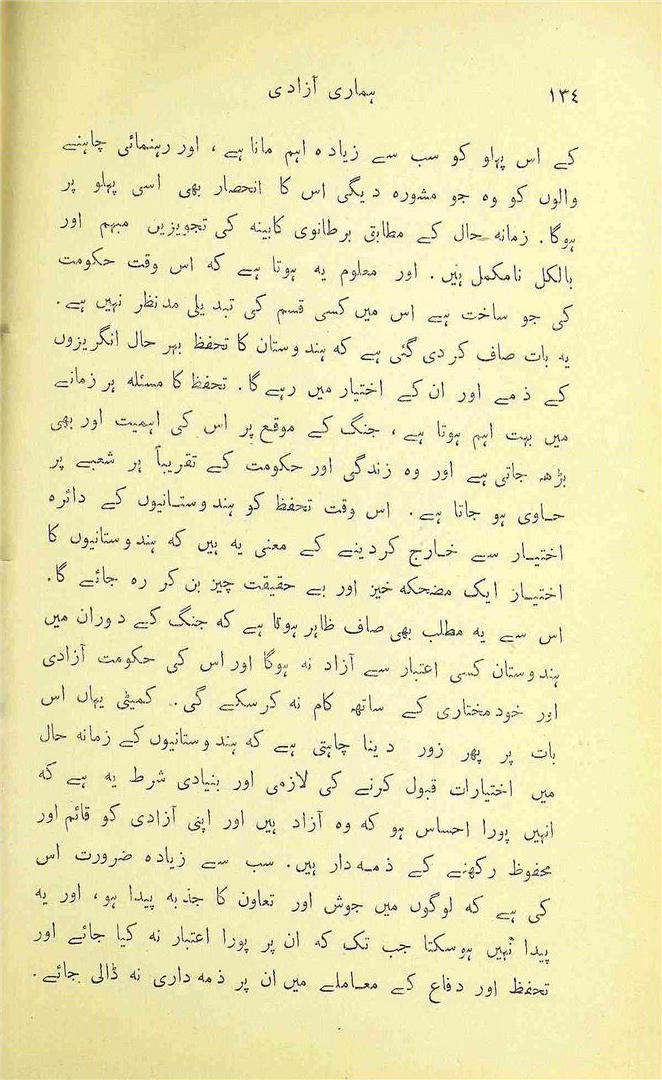 ۱۳٤ ہماری آزادی
کے اس پہلو کو سب سے زیادہ اہم مانا ہے ، اور رہنمائی چاہنے
والوں کو وہ جو مشورہ دیگی اس کا انحصار بھی اسی پہلو پر
ہوگا۔ زمانہ حال کے مطابق برطانوی کابینہ کی تجویزیں مبہم اور
بالکل نامکمل ہیں۔ اور معلوم یہ ہوتا ہے کہ اس وقت حکومت
کی جو ساخت ہے اس میں کسی قسم کی تبدیلی مدنظر نہیں ہے۔
یہ بات صاف کردی گئی ہے کہ ہندوستان کا تحفظ بہر حال انگریزوں
کے ذمے اور ان کے اختیار میں رہے گا۔ تحفظ کا مسئلہ ہر زمانے
میں بہت اہم ہوتا ہے ، جنگ کے موقع پر اس کی اہمیت اور بھی
بڑھ جاتی ہے اور وہ زندگی اور حکومت کے تقریباً ہر شعبے پر
حاوی ہو جاتا ہے۔ اس وقت تحفظ کو ہندوستانیوں کے دائرہ
اختیار سے خارج کردینے کے معنی یہ ہیں کہ ہندوستانیوں کا
اختیاز ایک مضحکہ خیز اور بے حقیقت چیز بن کر رہ جائے گا۔
اس سے یہ مطلب بھی صاف ظاہر ہوتا ہے کہ جنگ کے دوران میں
ہندوستان کسی اعتبار سے آزاد نہ ہوگا اور اس کی حکومت آزادی
اور خود مختاری کے ساتھ کام نہ کرسکے گی۔ کمیٹی یہاں اس
بات پر پھر زور دینا چاہتی ہے کہ ہندوستانیوں کے زمانہ حال
میں اختیارات قبول کرنے کی لازمی اور بنیادی شرط یہ ہے کہ
انہیں پورا احساس ہو کہ وہ آزاد ہیں اور اپنی آزادی کو قائم اور
محفوظ رکھنے کے ذمہ دار ہیں۔ سب سے زیادہ ضرورت اس
کی ہے کہ لوگوں میں جوش اور تعاون کا جذبہ پیدا ہو، اور یہ
پیدا نہیں ہوسکتا جب تک کہ ان پر پورا اعتبار نہ کیا جائے اور
تحفظ اور دفاع کے معاملے میں ان پر ذمہ داری نہ ڈالی جائے۔